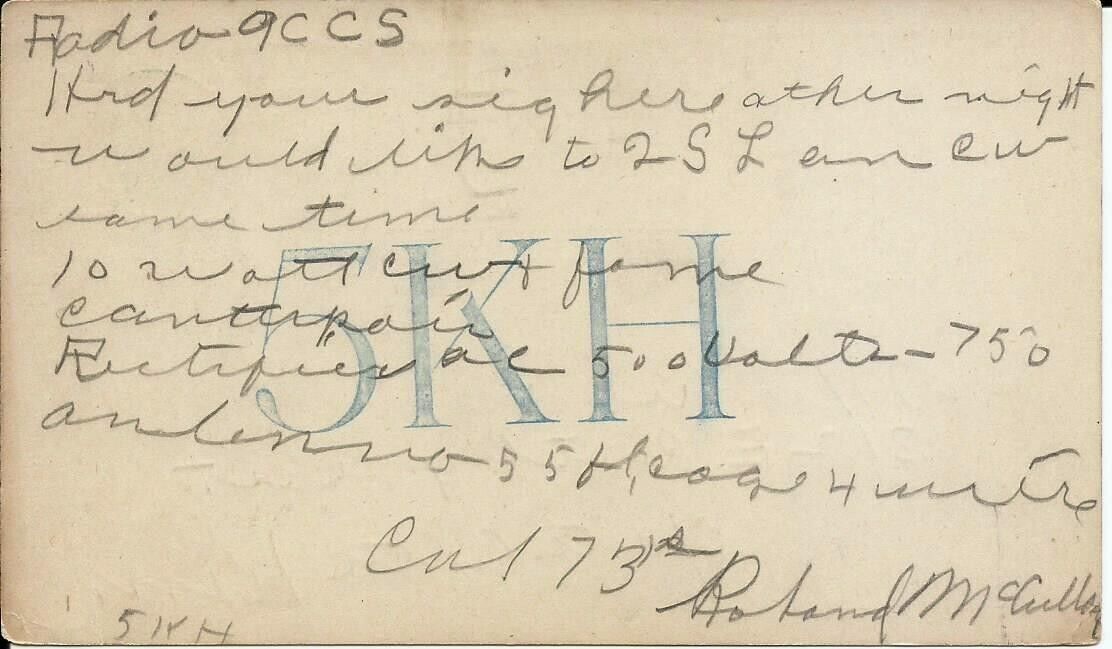 Radio 9CCS
Hrd your sig here other night
would like to QSL on CW
some time
5KH
10 watt CW & fone
Rectified ac 500 Volts - 750
antenna 55 ft, cage 4 wire
Cul 73s
Roland McCulloy
5KH